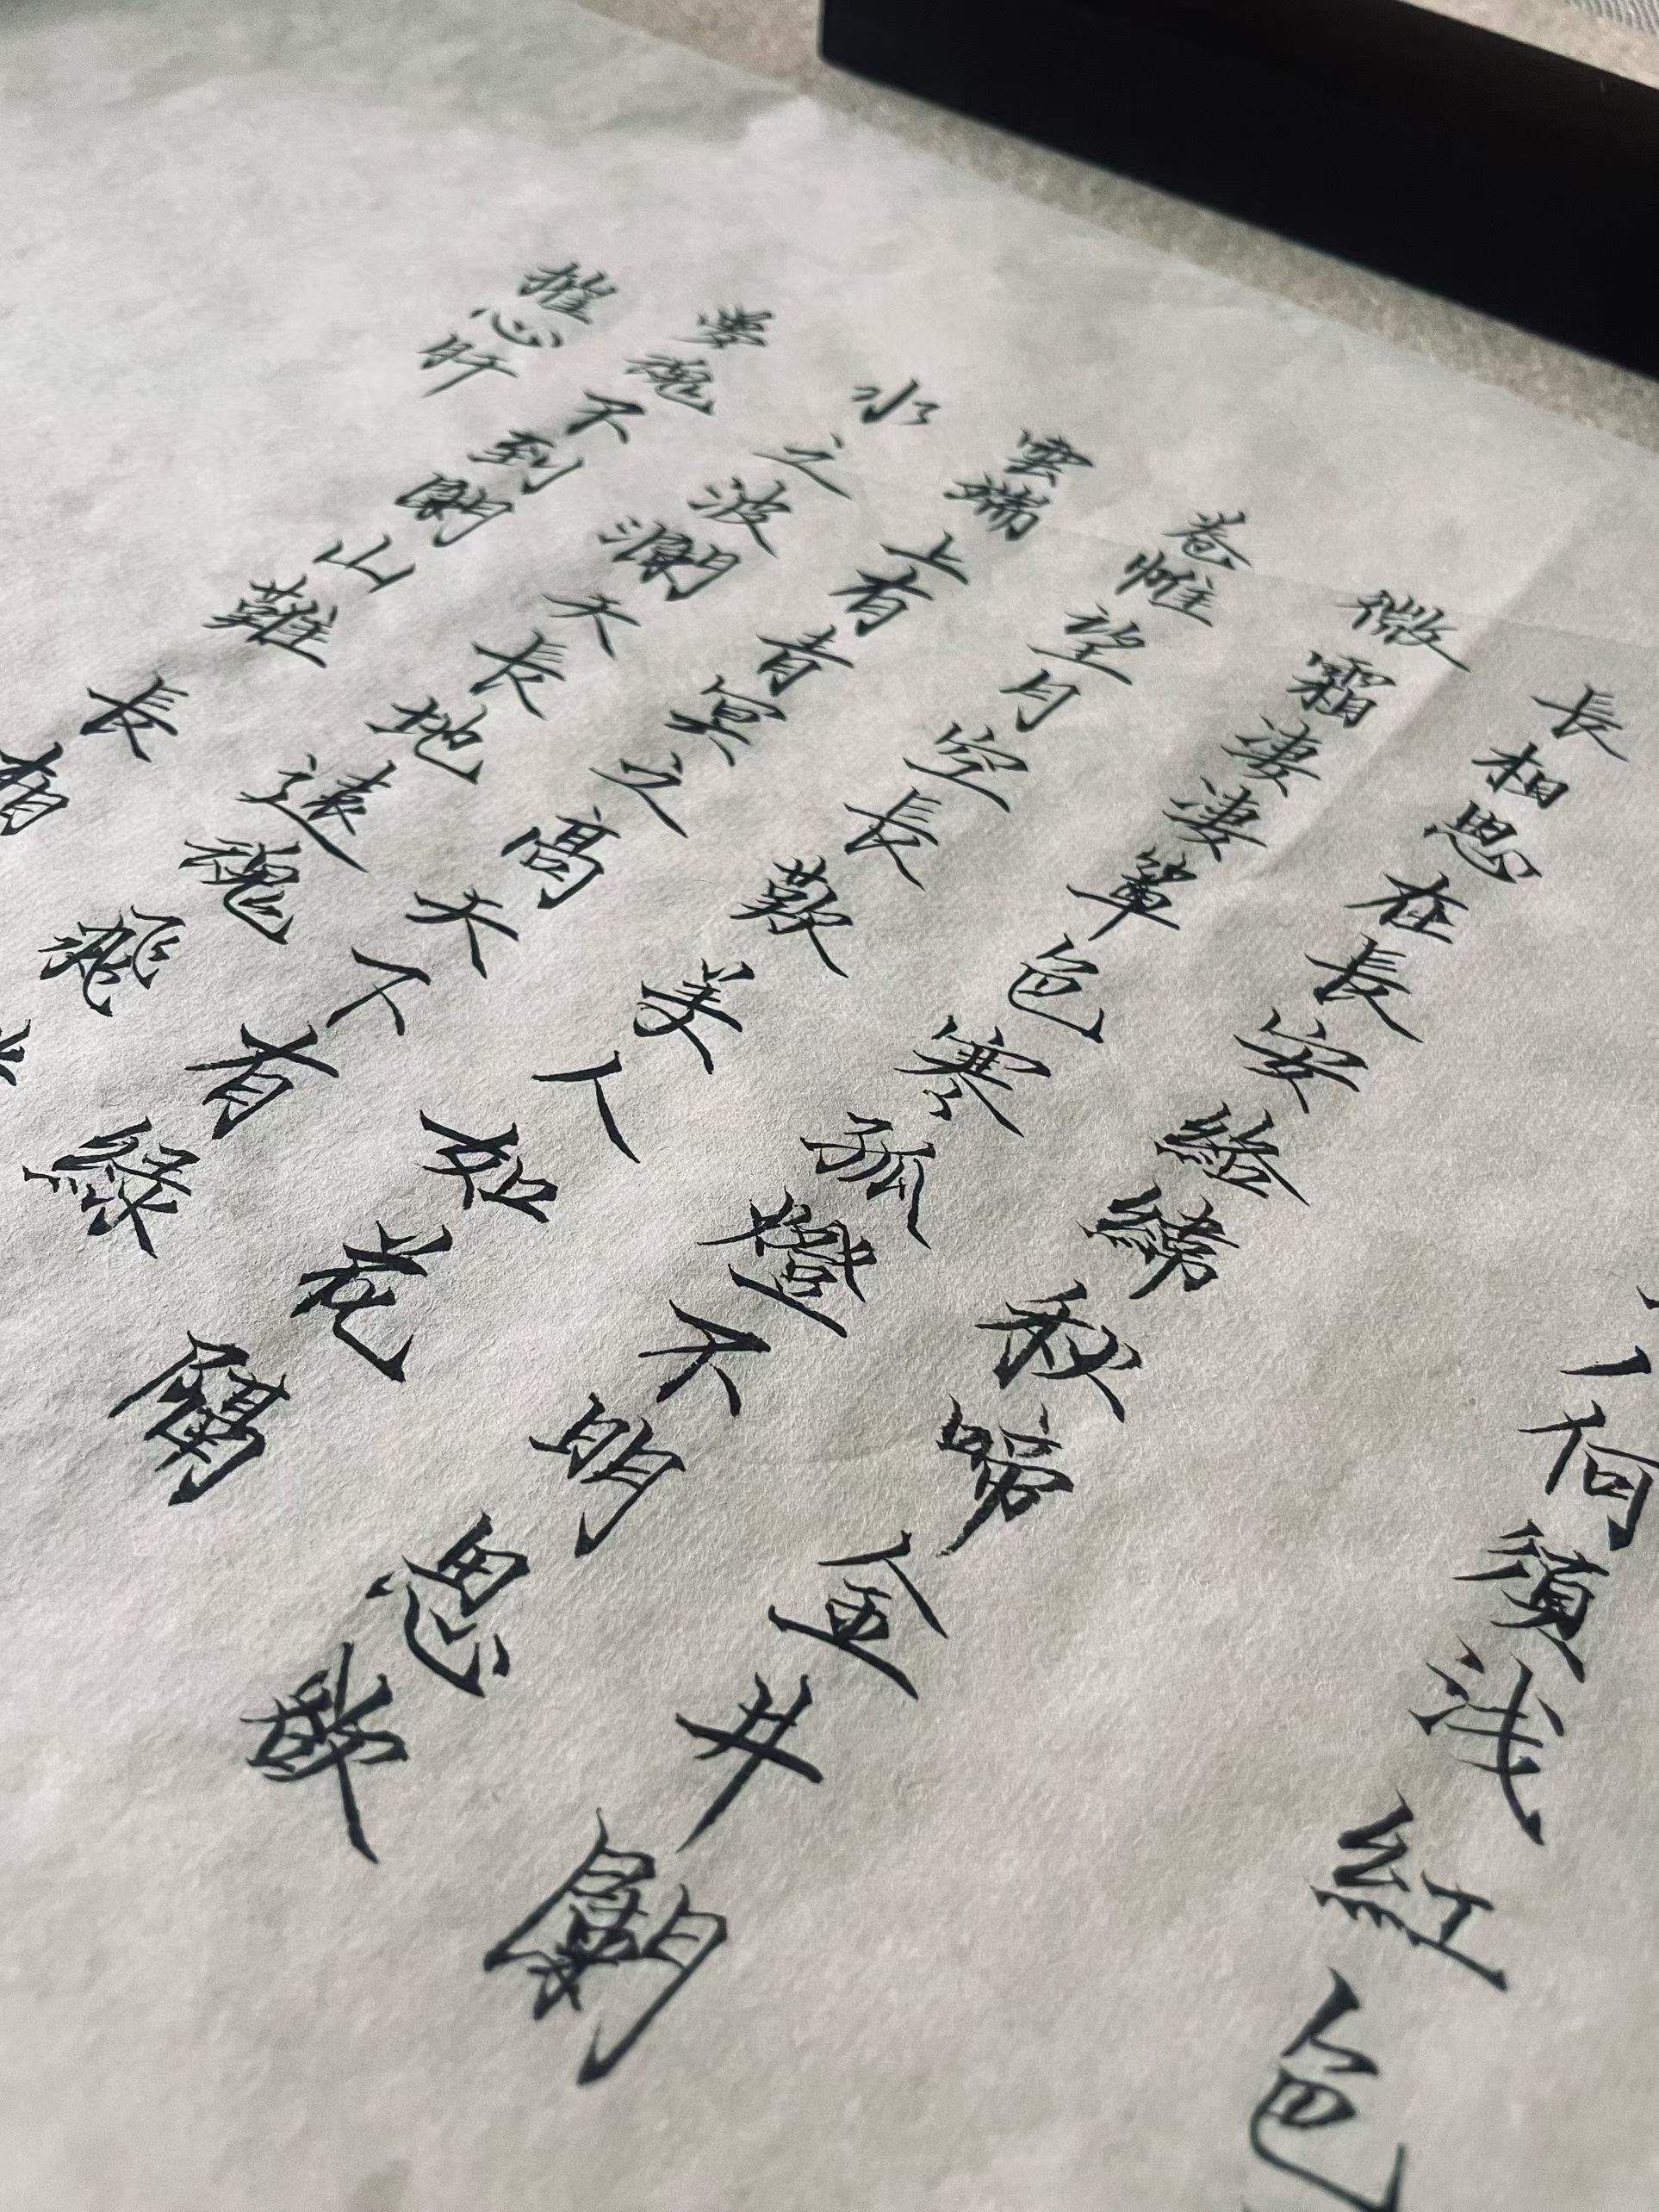 何須浅紅色
長相思在長安絡緯秋啼金井闌
微霜凄凄簟色寒孤燈不明思
卷帷望月空長歎美人如花隔
雲端上有青冥之高天下有綠
水之波瀾天長地遠魂飛
夢魂不到關山難長相
摧心肝